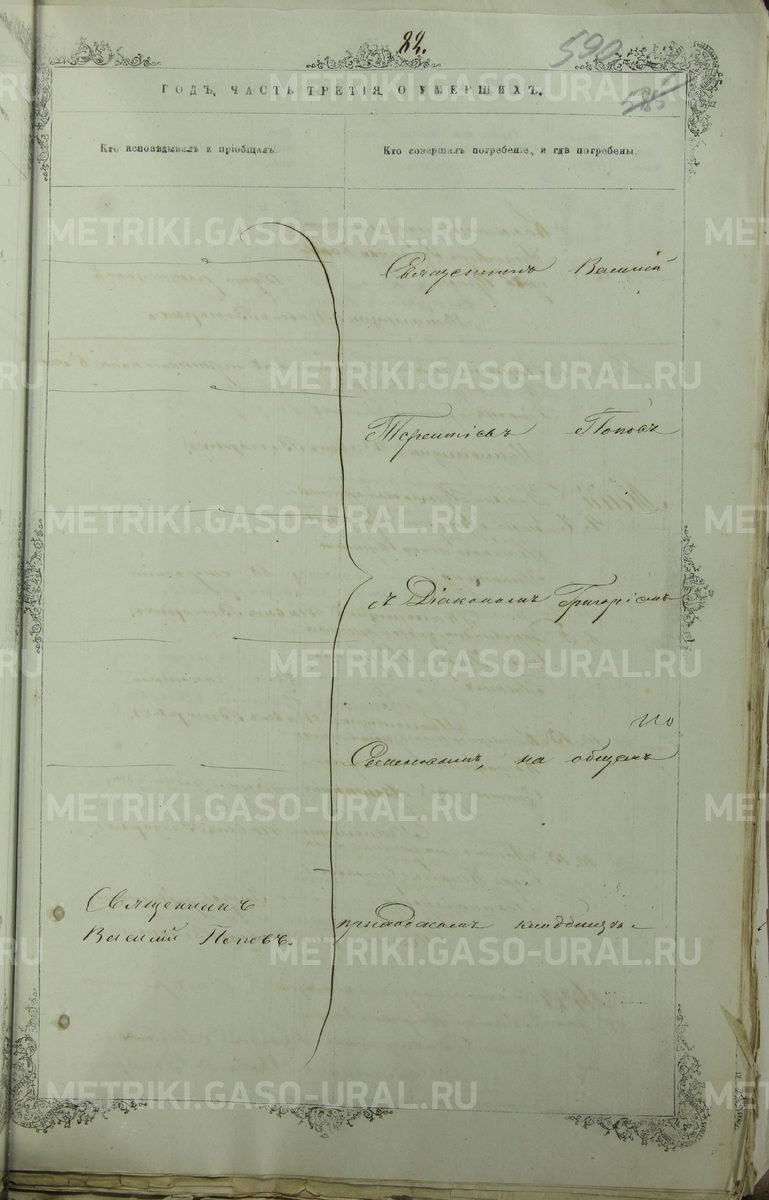 82.
590
585
ГОДЪ, ЧАСТЬ ТРЕТІЯ, О УМЕРШИХЪ.
Кто исповѣдывалъ и пріобщалъ.
Кто совершалъ погребеніе, и гдѣ погребены.
Священникъ Василій
Терентіевъ Поповъ
съ Діакономъ Григоріемъ
Семеновымъ, на общемъ
приходскомъ кладбищѣ
Священникъ
Василій Поповъ.
METRIKI.GASO-URAL.RU